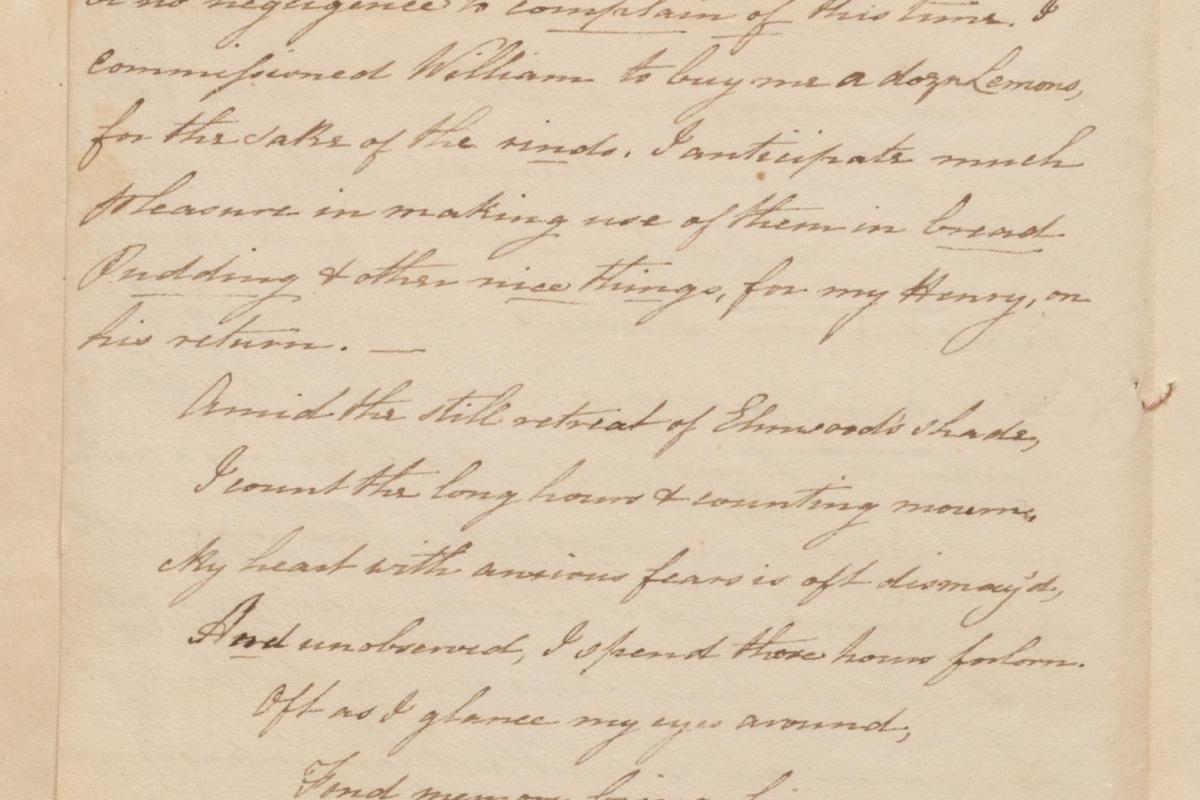 no negligence to complain of this time. I
commissioned William to buy me a dozn Lemons,
for the sake of the rinds. I anticipate much
pleasure in making use of them in bread
Pudding & other nice things, for my Henry, on
his return. —
Amid the still retreat of Elmwood's shade,
I count the long hours & counting mourn.
My heart with anxious fears is oft dismay'd,
And unobserved, I spend those hours forlorn.
Oft as I glance my eyes around,
Fond memory